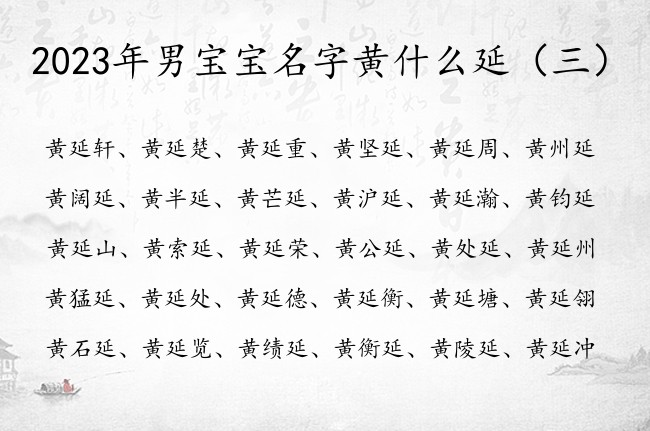 2023年男宝宝名字黄什么延（三）
黄延轩、黄延楚、黄延重、黄坚延、黄延周、黄州延
黄阔延、黄半延、黄芒延、黄沪延、黄延瀚、黄钧延
黄延山、黄索延、黄延荣、黄公延、黄处延、黄延州
黄猛延、黄延处、黄延德、黄延衡、黄延塘、黄延翎
黄石延、黄延览、黄绩延、黄衡延、黄陵延、黄延冲